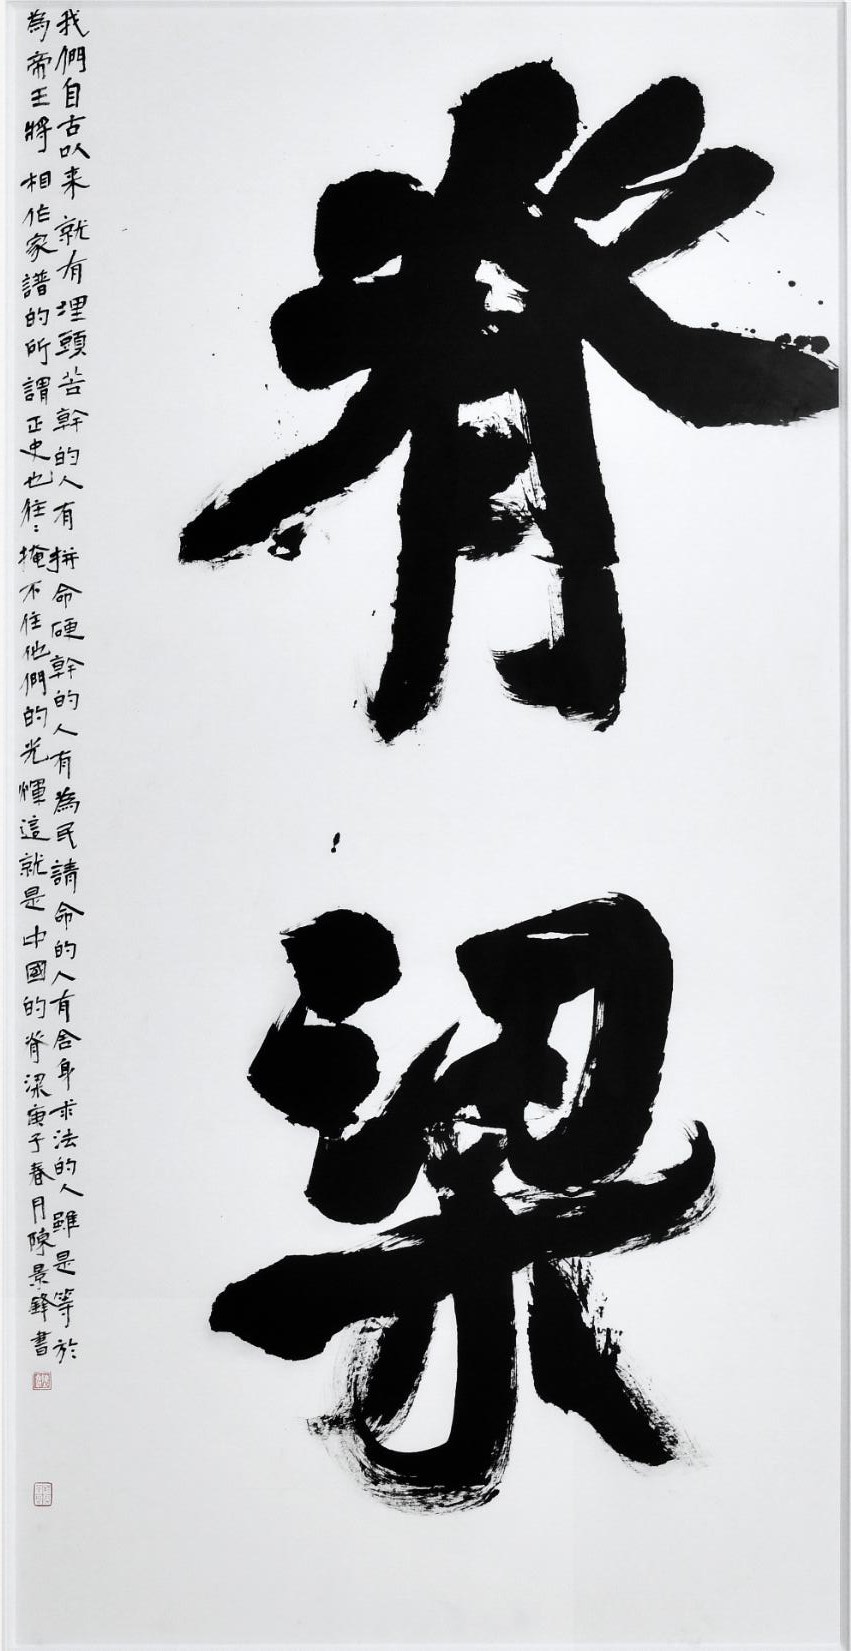 脊梁
我們自古以来就有埋頭苦幹的人有拼命硬幹的人有為民請命的人有舍身求法的人雖是等於
為帝王將相作家譜的所謂正史也往〻掩不住他們的光輝這就是中國的脊梁庚子春月陳景鋒書